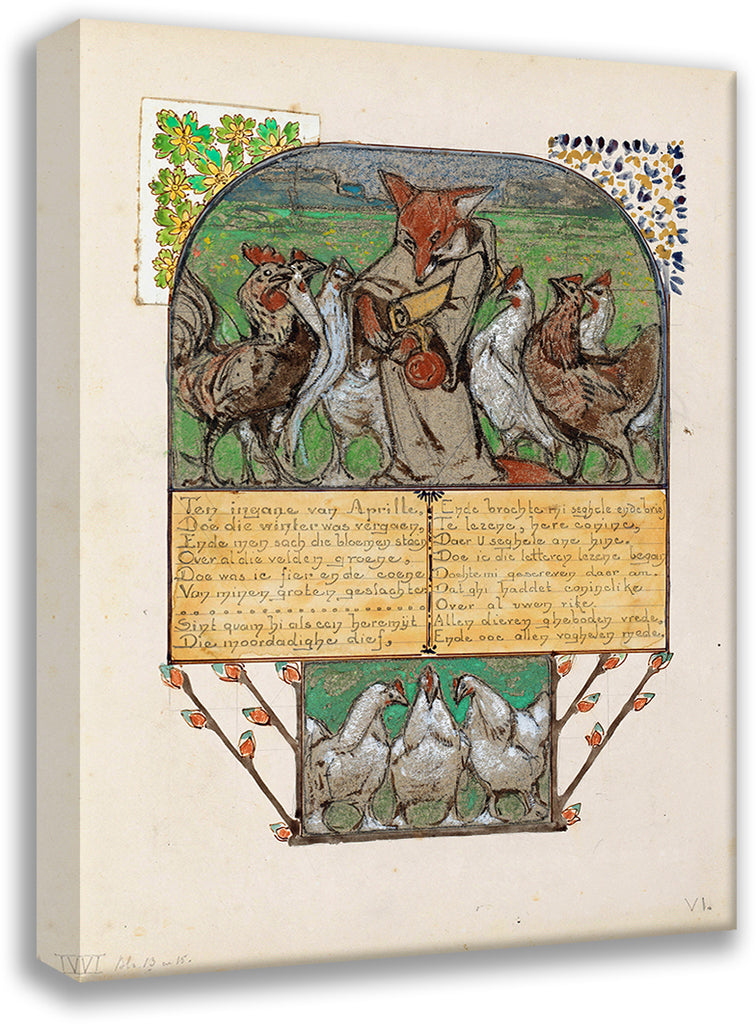 Ten ingane van Aprille,
Doe die winter was vergaen,
Ende men sach die bloemen staen
Over al die velden groene,
Doe was ic fier ende coene
Van minen groten geslachte
Sint quam hi als een heremijt
Die moordadighe dief,
Ende brochte mi seghele ende brie
Te lezene, here coninc,
Daer u seghele ane hinc.
Doe ic die letteren lezene began
Dochte mi gescreven daer an.
Dat ghi haddet coninclike
Over al uwen rike
Allen dieren gheboden vrede,
Ende ooc allen voghelen mede.
VI.